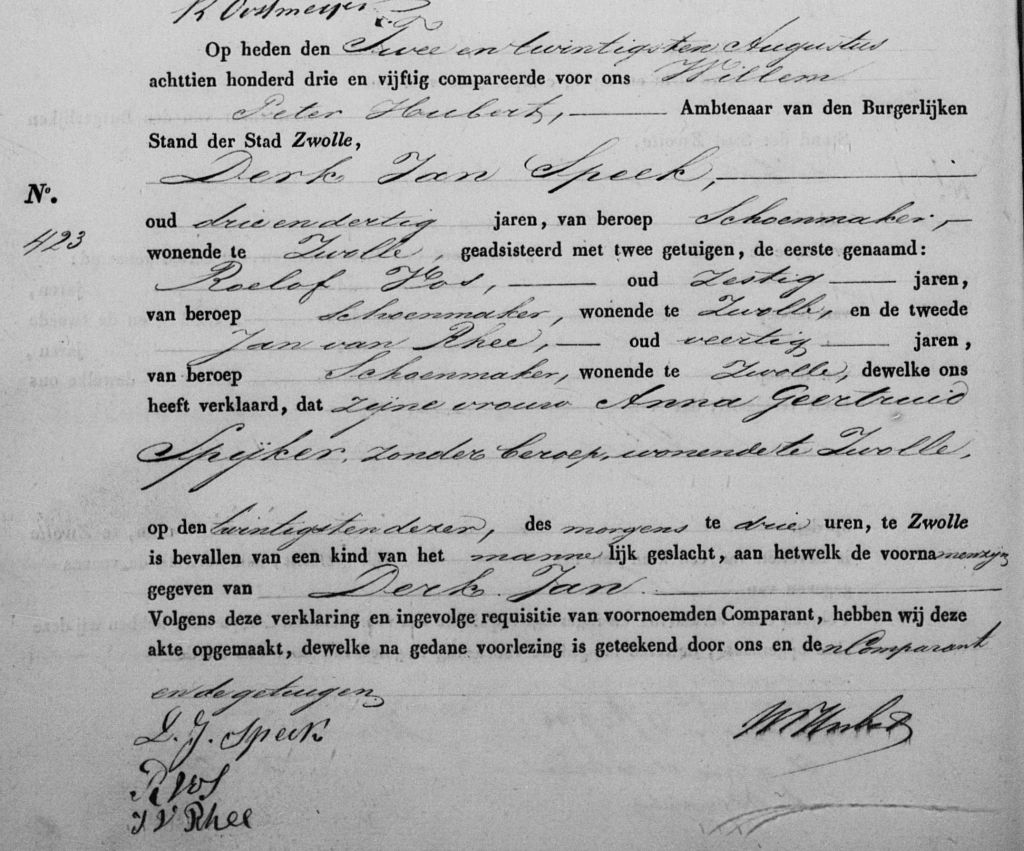 R Oostmeijer
Op heden den Twee en twintigsten Augustus
achttien honderd drie en vijftig compareerde voor ons Willem
Peter Hubert, Ambtenaar van den Burgerlijken
Stand der Stad Zwolle,
Derk Jan Speek,
No.
oud drie en dertig jaren, van beroep Schoenmaker,
423
wonende te Zwolle, geadsisteerd met twee getuigen, de eerste genaamd:
Roelof Vos, oud zestig jaren,
van beroep Schoenmaker, wonende te Zwolle, en de tweede
Jan van Rhee, oud veertig jaren,
van beroep Schoenmaker, wonende te Zwolle, dewelke ons
heeft verklaard, dat zijne vrouw Anna Geertruid
Spijker, zonder beroep, wonende te Zwolle,
op den twintigsten dezer, des morgens te drie uren, te Zwolle
is bevallen van een kind van het mannelijk geslacht, aan hetwelk de voornamen zijn
gegeven van Derk Jan.
Volgens deze verklaring en ingevolge requisitie van voornoemden Comparant, hebben wij deze
akte opgemaakt, dewelke na gedane voorlezing is geteekend door ons en den Comparant
en de getuigen
D. J. Speek
WPHubert
R Vos
J V Rhee